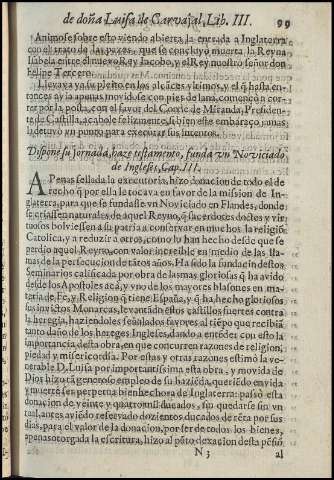 de doña Luisa de Carvajal, Lib. III. 99
Animose sobre esto viendo abierta la entrada a Inglaterra
con el trato de las pazes, que se concluyó muerta la Reyna
Isabela entre el nuevo Rey Iacobo, y el Rey nuestro señor don
Felipe Tercero.
Llevava ya su pleito en los alcãces vltimos, y el q̃ hasta en-
tonces avia a penas movidose con pies de lana, començò a cor-
rer por la posta, con el favor del Conde de Miranda, Presiden-
te de Castilla, acabole felizmente, si bien este embaraço jamas
la detuvo vn punto para executar sus intentos.
Dispone su jornada, haze testamento, funda vn Noviciado
de Ingleses, Cap. III.
A Penas sellada la executoria, hizo donacion de todo el de
recho q̃ por ella le tocava en favor de la mission de In-
glaterra, para que se fundasse vn Noviciado en Flandes, donde
se criassen naturales de aquel Reyno, q̃ sacerdotes doctos y vir
tuosos bolviessen a su patria a conservar en muchos la religiõ
Catolica, y a reduzir a otros, como lo han hecho desde que se
perdio aquel Reyno, con valor increible en medio de las lla-
mas de la persecucion de tãtos años. Ha sido la fundaciõ destos
Seminarios calificada por obra de las mas gloriosas q̃ ha avido
desde los Apostoles acà, y vno de los mayores blasones en ma-
teria de Fe, y Religion q̃ tiene España, y q̃ ha hecho gloriosos
sus invictos Monarcas, levantãdo estos castillos fuertes contra
la heregia, haziendoles señalados favores al tiẽpo que recibiã
mayor daño de los hereges Ingleses, dando a entẽder con esto la
importancia desta obra, en que concurren razones de religion,
piedad y misericordia. Por estas y otras razones estimò la ve-
nerable D. Luisa por importantissima esta obra, y movida de
Dios hizo tã generoso empleo de su haziẽda, queriẽdo en vida
y muerte ser perpetua bienhechora de Inglaterra: passò esta
donacion de veinte y quatro mil ducados, sin quedarse sin vn
real, antes aviẽdo reservado dozientos ducados de rẽta por sus
dias, para el valor de la donacion, por ser de todos los bienes,
apenas otorgada la escritura, hizo al pũto dexacion desta pẽsiõ
N 3 al